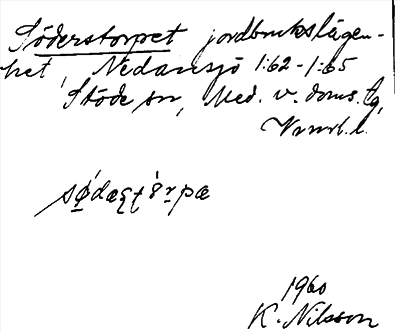 Söderstorpet jordbrukslägen-
het, Nedansjö 1:62-1:65
Stöde sn, Med. v. doms. tg,
Vnrl. l.
1960
K. Nilsson